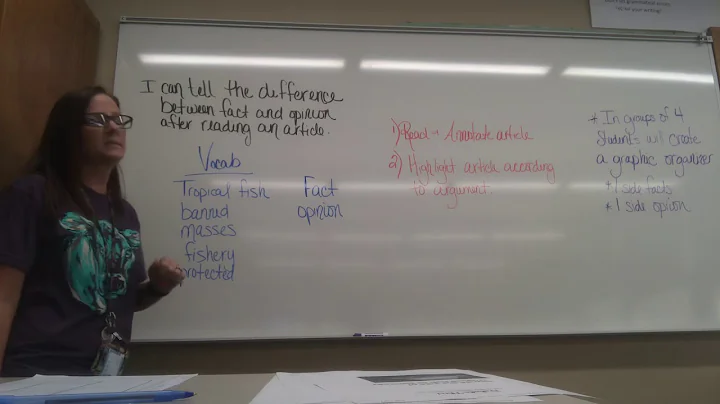 I can tell the difference
between fact and opinion
after reading an article.
Vocab
Tropical fish
banned
masses
fishery
protected
Fact
opinion
1) Read & Annotate article
2) Highlight article according
to argument.
* In groups of 4
students will create
a graphic organizer
* 1 side facts
* 1 side opinion